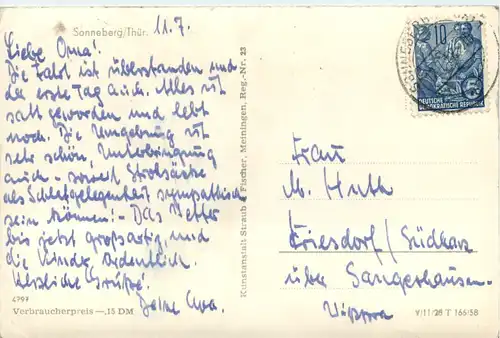 Sonneberg/Thür.
11.7.
Liebe Oma!
Die Fahrt ist überstanden und
der erste Tag auch. Alles ist
satt geworden und lebt
noch. Die Umgebung ist
sehr schön, Unterbringung
auch - soweit Strohsäcke
als Schlafgelegenheit sympathisch
sein können! - Das Wetter
bis jetzt großartig, und
die Kinder ordentlich.
Herzliche Grüße!
Deine
4797
Verbraucherpreis —,15 DM
Kunstanstalt Straub & Fischer, Meiningen, Reg.-Nr. 23
10
DEUTSCHE
DEMOKRATISCHE REPUBLIK
Frau
M. Huth
Friesdorf/Südharz
über Sangerhausen-
Wippra
V/11/28 T 166/58